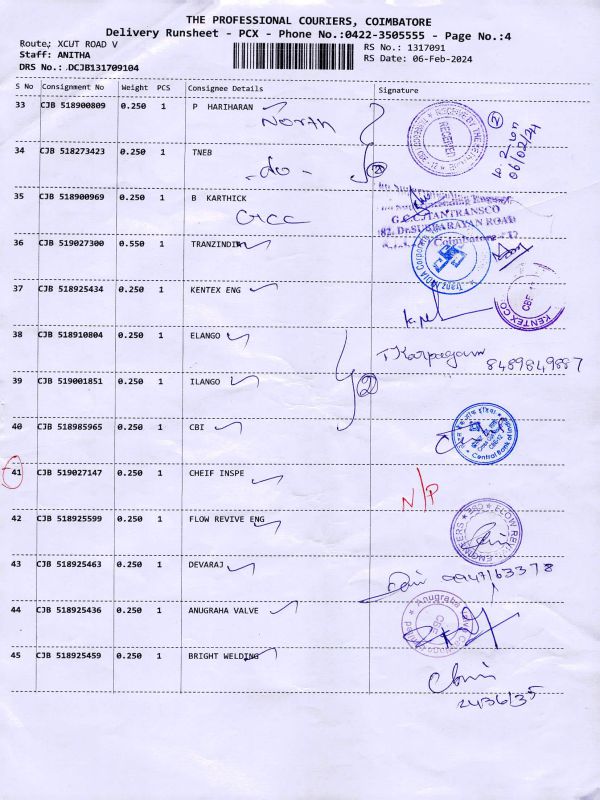 THE PROFESSIONAL COURIERS, COIMBATORE
Delivery Runsheet - PCX - Phone No.:0422-3505555 - Page No.:4
Route: XCUT ROAD V
RS No.: 1317091
Staff: ANITHA
RS Date: 06-Feb-2024
DRS No.: DCJB131709104
S No Consignment No Weight PCS Consignee Details Signature
33 CJB 518900809 0.250 1 P HARIHARAN
2
06/02/24
34 CJB 518273423 0.250 1 TNEB
-do- 2
35 CJB 518900969 0.250 1 B KARTHICK
GCC
G.C.C./TANTRANSCO
36 CJB 519027300 0.550 1 TRANZINDIA
37 CJB 518925434 0.250 1 KENTEX ENG
KENTEX CO
38 CJB 518910804 0.250 1 ELANGO
T Karpagam
8489849887
39 CJB 519001851 0.250 1 ILANGO
2
40 CJB 518985965 0.250 1 CBI
Central Bank of India
41 CJB 519027147 0.250 1 CHEIF INSPE
N/P
42 CJB 518925599 0.250 1 FLOW REVIVE ENG
43 CJB 518925463 0.250 1 DEVARAJ
44 CJB 518925436 0.250 1 ANUGRAHA VALVE
Anugraha
45 CJB 518925459 0.250 1 BRIGHT WELDING